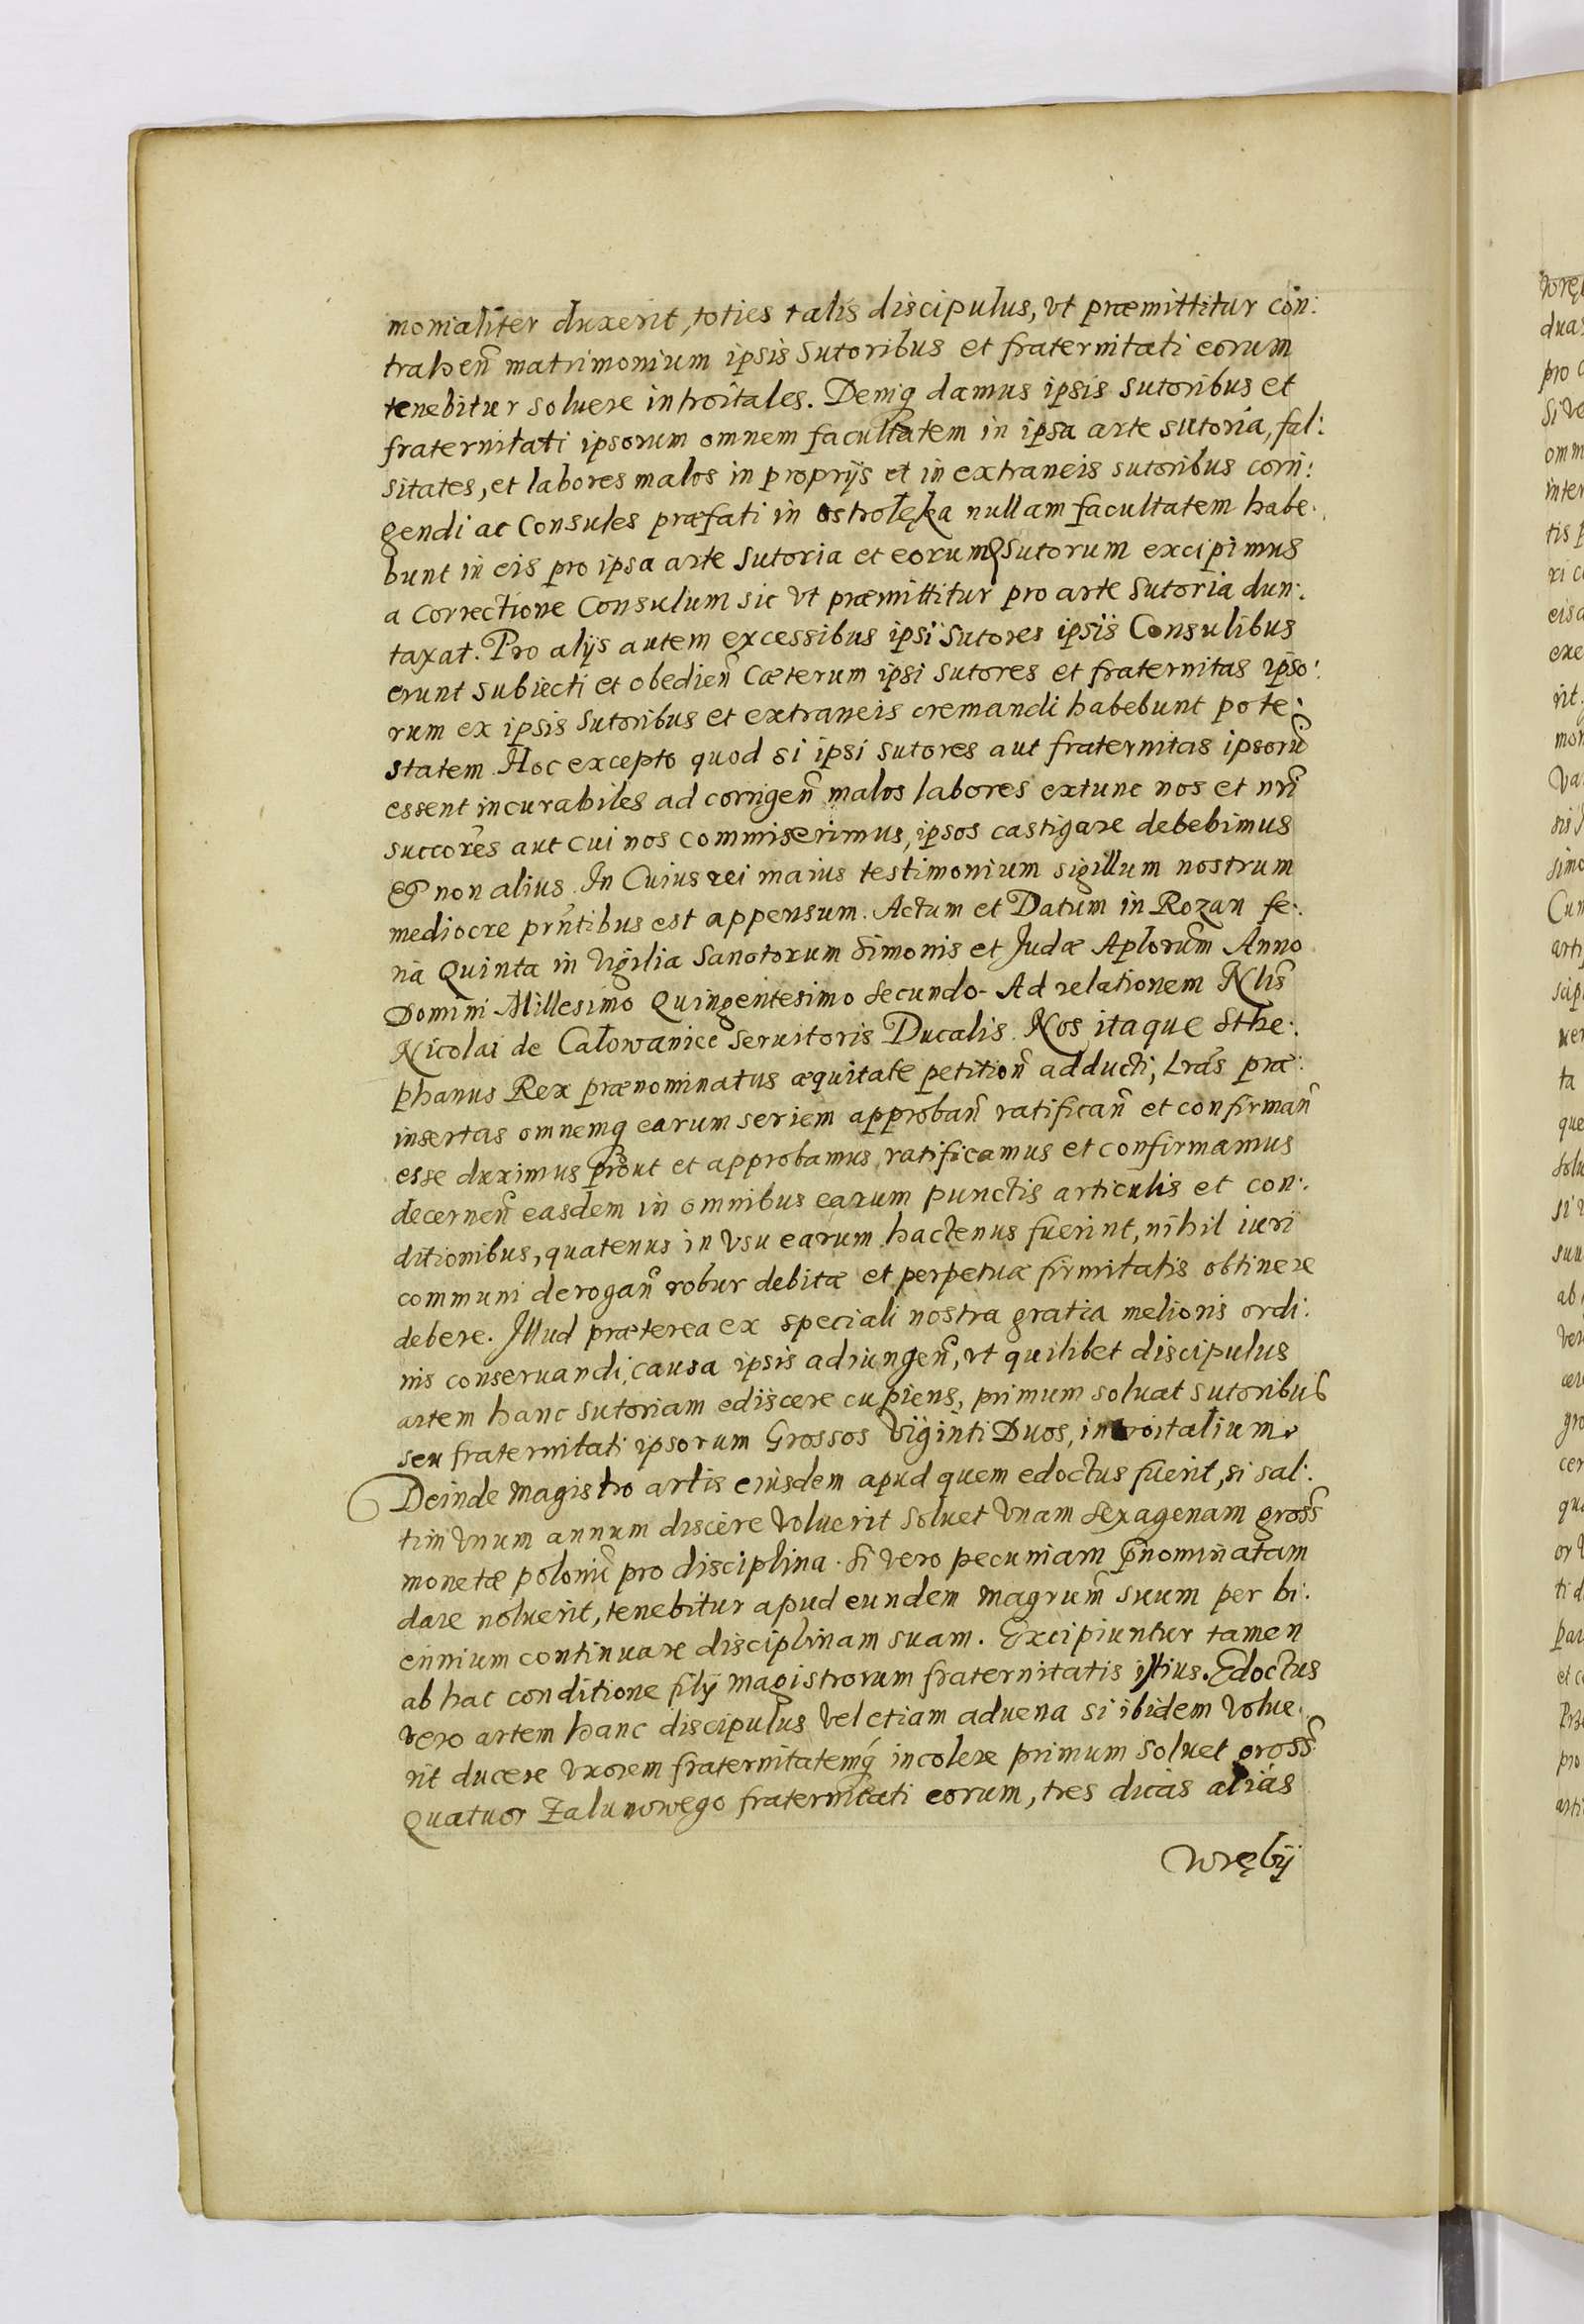 monialiter duxerit, toties talis discipulus, vt præmittitur con:
trahen̄ matrimonium ipsis sutoribus et fraternitati eorum
tenebitur soluere introitales. Deniq damus ipsis sutoribus et
fraternitati ipsorum omnem facultatem in ipsa arte sutoria, fal:
sitates, et labores malos in proprijs et in extraneis sutoribus corri:
gendi ac Consules præfati in Ostrołęka nullam facultatem habe:
bunt in eis pro ipsa arte sutoria et eorum sutorum excipimus
a correctione Consulum sic vt præmittitur pro arte sutoria dun:
taxat. Pro alijs autem excessibus ipsi sutores ipsis Consulibus
erunt subiecti et obedien̄ Cæterum ipsi sutores et fraternitas ipso:
rum ex ipsis sutoribus et extraneis cremandi habebunt pote:
statem. Hoc excepto quod si ipsi sutores aut fraternitas ipsorū
essent incurabiles ad corrigen̄ malos labores extunc nos et nr̄i
succor̄es aut cui nos commiserimus, ipsos castigare debebimus
et non alius. In Cuius rei maius testimonium sigillum nostrum
mediocre prn̄tibus est appensum. Actum et Datum in Rozan fe:
ria Quinta in Vigilia Sanctorum Simonis et Judæ Aplorum̄ Anno
Domini Millesimo Quingentesimo Secundo - Ad relationem Nlis̄
Nicolai de Całowaniee seruitoris Ducalis. Nos itaque Sthe:
phanus Rex prænominatus æquitate petition̄ adducti, Lrās præ:
insertas omnemq earum seriem approban̄ ratifican̄ et confirman̄
esse duximus prout et approbamus, ratificamus et confirmamus
decernen̄ easdem in omnibus earum punctis articulis et con:
ditionibus, quatenus in vsu earum hactenus fuerint, nihil iuri
communi derogan̄ robur debitæ et perpetuæ firmitatis obtinere
debere. Illud præterea ex speciali nostra gratia melioris ordi:
nis conseruandi, causa ipsis adiungen̄, vt quilibet discipulus
artem hanc sutoriam ediscere cupiens, primum soluat sutoribus
seu fraternitati ipsorum Grossos Viginti Duos, introitalium.
Deinde magistro artis eiusdem apud quem edoctus fuerit, si sal:
tim vnum annum discere voluerit soluet vnam sexagenam gross̄
monetæ polonic̄ pro disciplina. Si vero pecuniam p̄nominatam
dare noluerit, tenebitur apud eundem magrum̄ suum per bi:
ennium continuare disciplinam suam. Excipiuntur tamen
ab hac conditione filij magistrorum fraternitatis istius. Edoctus
vero artem hanc discipulus vel etiam aduena si ibidem volue:
rit ducere vxorem fraternitatemq́ incolere primum soluet gross̄
Quatuor Zalunowego fraternitati eorum, tres dicas aliás
wrębij